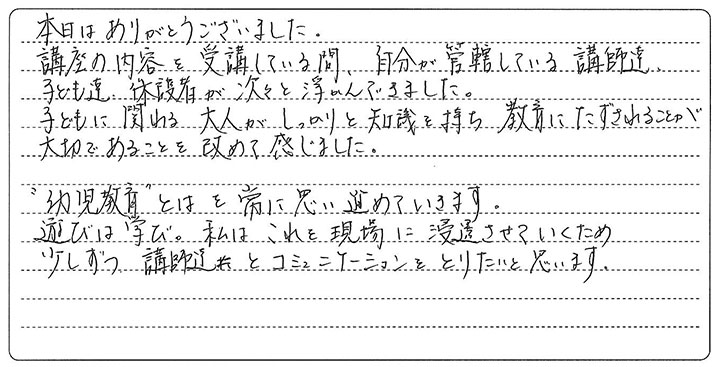 本日はありがとうございました.
講座の内容を受講している間、自分が管轄している講師達、
子ども達、保護者が次々と浮かんできました。
子どもに関わる大人がしっかりと知識を持ち教育にたずさわることが
大切であることを改めて感じました。
"幼児教育"とはを常に思い進めていきます.
遊びは学び。私はこれを現場に浸透させていくため
少しずつ講師達とコミュニケーションをとりたいと思います.